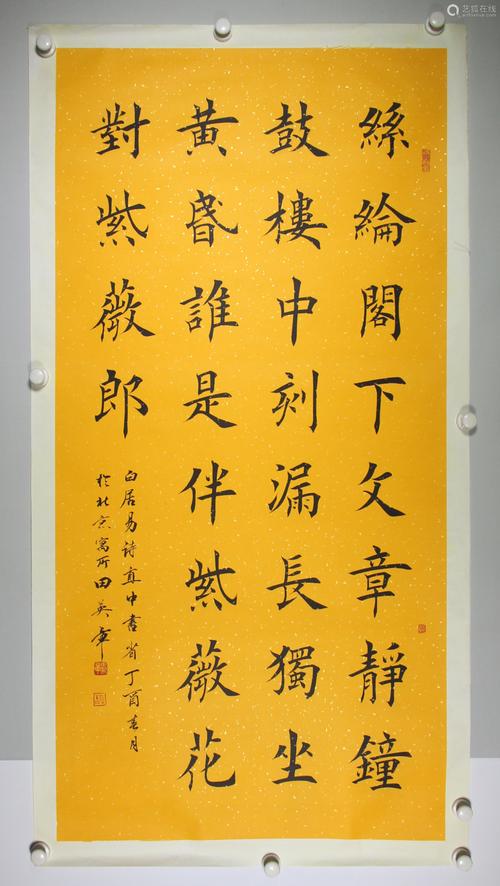 絲綸閣下文章靜鐘
鼓樓中刻漏長獨坐
黃昏誰是伴紫薇花
對紫薇郎
白居易詩直中書省丁酉春月
於北京寓所田英章
艺狐在线